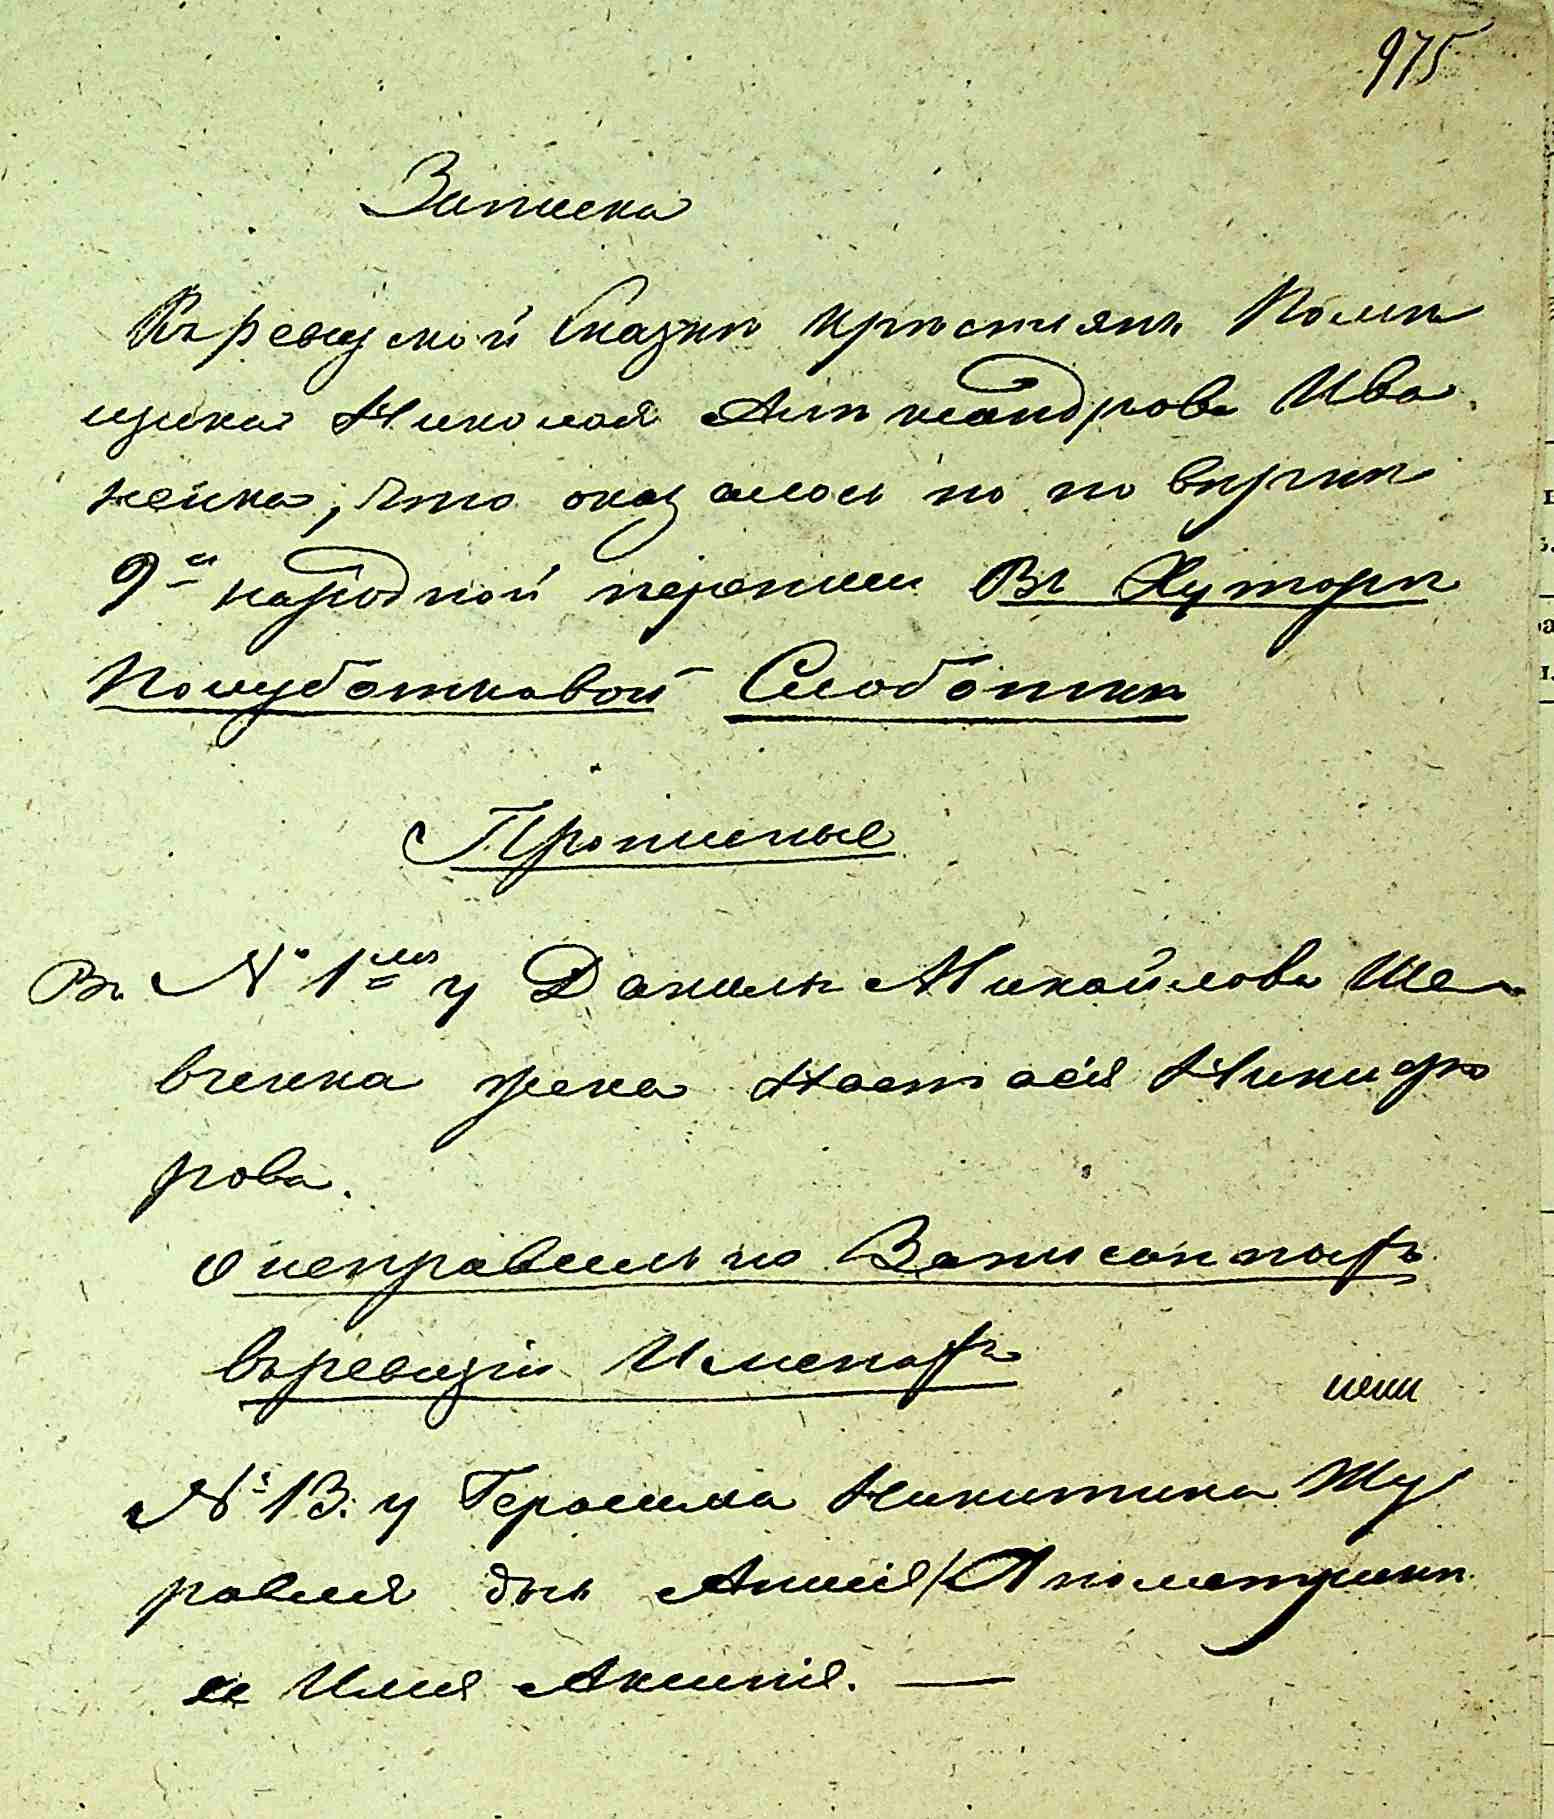 975
Записка
Къ ревизской Сказки крѣстиянъ Помѣ
щика Николая Алѣксандрова Ива
ненка, что оказалось по повѣрки
9й народной переписи Въ Хуторѣ
Полуботковой Слоботки
Прописные
Въ № 1мъ у Данилы Михайлова Ше-
вченка жена Настасія Никифо
рова.
О неправильно Записанныхъ
въ ревизіи Именахъ
№ 13. у Герасима Никитина Жу
равля дочь Анисія / По метрики
ее Имя Аксинія. —